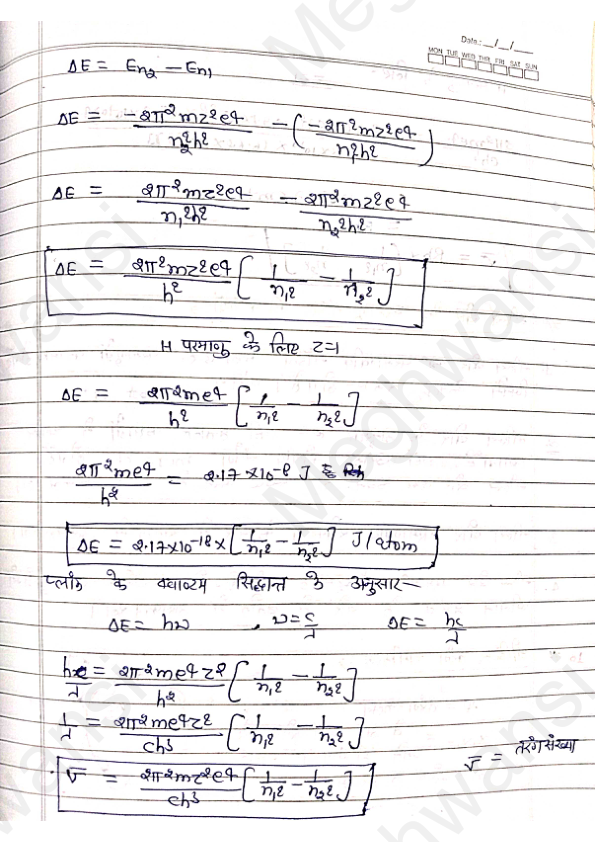 Date: __/__/__
MON TUE WED THU FRI SAT SUN
ΔE = En₂ − En₁
ΔE = −2π²mz²e⁴/n₂²h² − (−2π²mz²e⁴/n₁²h²)
ΔE = 2π²mz²e⁴/n₁²h² − 2π²mz²e⁴/n₂²h²
ΔE = 2π²mz²e⁴/h² [1/n₁² − 1/n₂²]
H परमाणु के लिए z=1
ΔE = 2π²me⁴/h² [1/n₁² − 1/n₂²]
2π²me⁴/h² = 2.17×10⁻¹⁸ J
ΔE = 2.17×10⁻¹⁸× [1/n₁² − 1/n₂²] J/atom
प्लांक के क्वाण्टम सिद्धान्त के अनुसार—
ΔE = hν , ν = c/λ ΔE = hc/λ
hc/λ = 2π²me⁴z²/h² [1/n₁² − 1/n₂²]
1/λ = 2π²me⁴z²/ch³ [1/n₁² − 1/n₂²]
ν̅ = 2π²mz²e⁴/ch³ [1/n₁² − 1/n₂²]
ν̅ = तरंग संख्या
Meghwansi